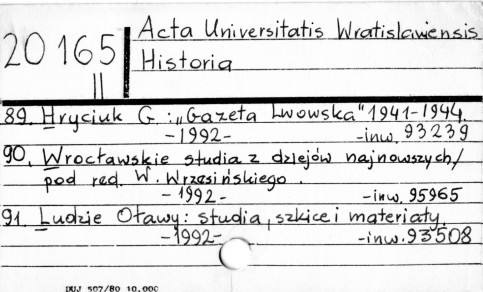 20165
II
Acta Universitatis Wratislawiensis
Historia
89. Hryciuk G. : „Gazeta Lwowska" 1941-1944.
-1992- -inw. 93239
90. Wrocławskie studia z dziejów najnowszych/
pod red. W. Wrzesińskiego.
-1992- -inw. 95965
91. Ludzie Oławy: studia, szkice i materiały.
-1992- -inw. 93508
DUJ 507/80 10.000